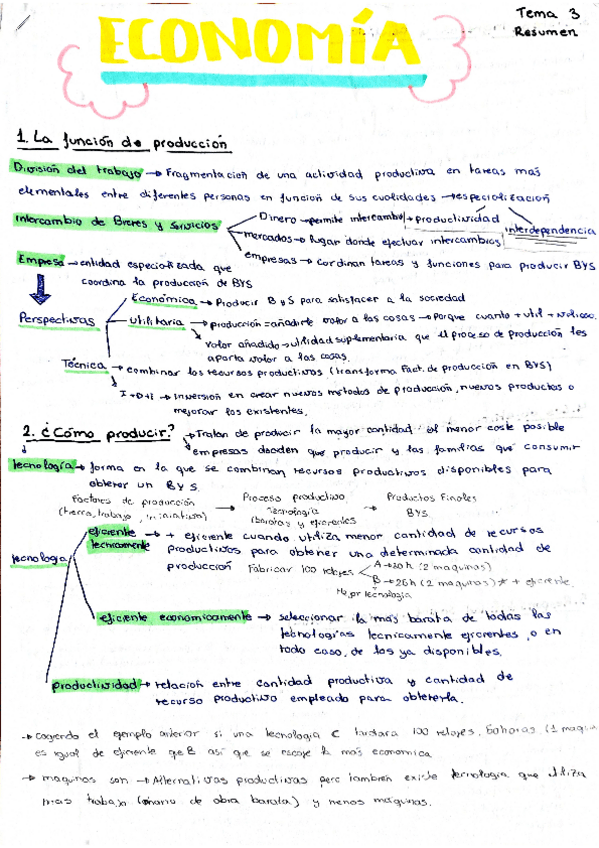 Tema 3
Resumen
ECONOMÍA
1. La función de producción
División del trabajo → Fragmentación de una actividad productiva en tareas más
elementales entre diferentes personas en funcion de sus cualidades → especialización
Intercambio de Bienes y Servicios
Dinero → permite intercambio + productividad
interdependencia
mercados → lugar donde efectuar intercambios
empresas → cordinan tareas y funciones para producir BYS
Empresa → entidad especializada que
coordina la producción de BYS
Perspectivas
Económica → Producir B y S para satisfacer a la sociedad
utilitaria → producción = añadirle valor a las cosas → porque cuanto + util + valioso.
valor añadido → utilidad suplementaria que el proceso de producción les
aporta valor a las cosas.
Técnica → combinar los recursos productivos (transforma Fact. de producción en BYS)
I+D+i → Inversión en crear nuevos metodos de producción, nuevos productos o
mejorar los existentes.
2. ¿Cómo producir?
→ Tratan de producir la mayor cantidad al menor coste posible
empresas deciden que producir y las familias que consumir
tecnología → forma en la que se combinan recursos productivos disponibles para
obtener un B Y S.
Factores de producción → Proceso productivo → Productos Finales
(tierra, trabajo, iniciativa) Tecnología BYS
(baratas y eficientes
tecnología
eficiente tecnicamente → + eficiente cuando utiliza menor cantidad de recursos
productivos para obtener una determinada cantidad de
producción
Fabricar 100 relojes
A → 30 h (2 maquinas)
B → 26h (2 maquinas) * + eficiente
Mejor tecnología
eficiente economicamente → seleccionar la más barata de todas las
tecnologías tecnicamente eficientes, o en
todo caso, de las ya disponibles.
productividad → relación entre cantidad productiva y cantidad de
recurso productivo empleado para obtenerla.
→ Cogiendo el ejemplo anterior si una tecnologia C tardara 100 relojes, horas (1 maquin
es igual de eficiente que B así que se escoje la más economica
→ maquinas son → Alternativas productivas pero tambien existe tecnología que utiliza
mas trabajo (mano de obra barata) y menos maquinas.